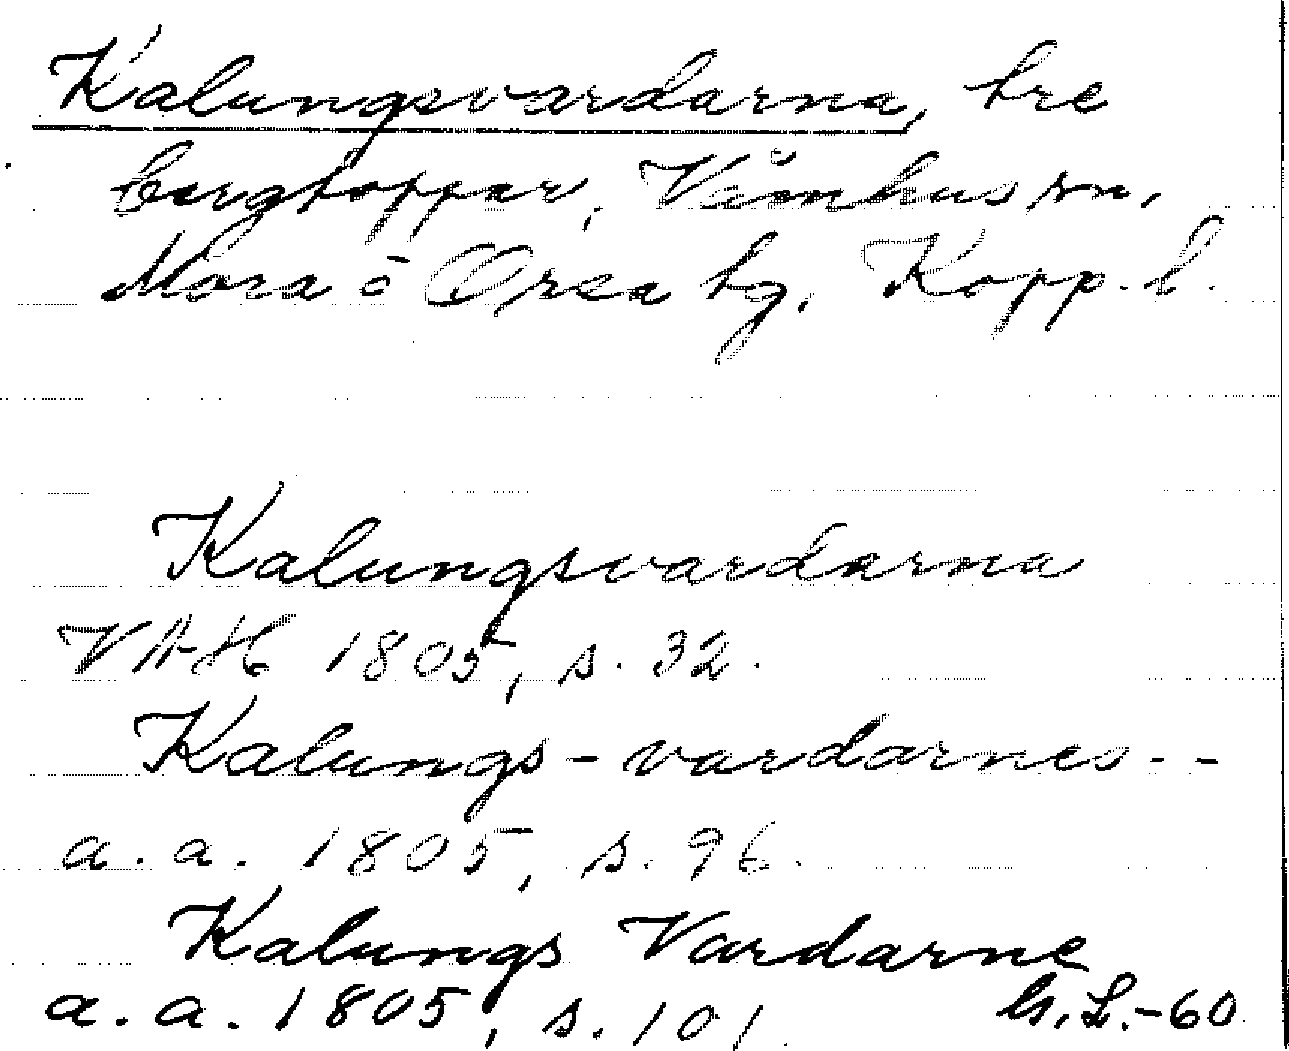 Kalungsvardarna, tre
bergtoppar, Våmhus sn,
Mora o Orsa tg. Kopp. l.
Kalungsvardarna
VAH 1805, s. 32.
Kalungs-vardarnes--
a. a. 1805, s. 96.
Kalungs Vardarne
a. a. 1805, s. 101
G. L. -60